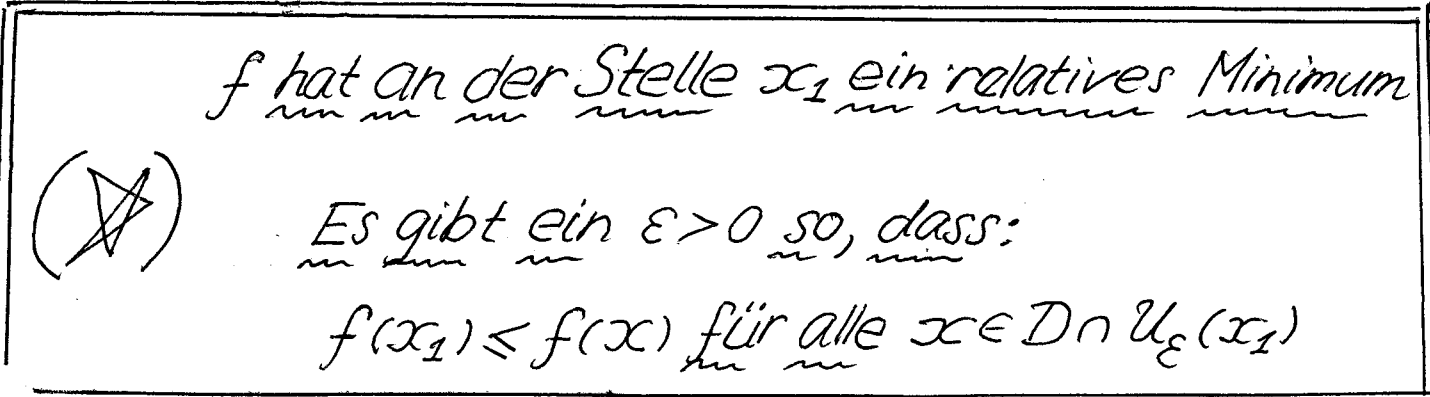 f hat an der Stelle x₁ ein relatives Minimum
(☆)
Es gibt ein ε>0 so, dass:
f(x₁) ≤ f(x) für alle x ∈ D ∩ U_ε(x₁)